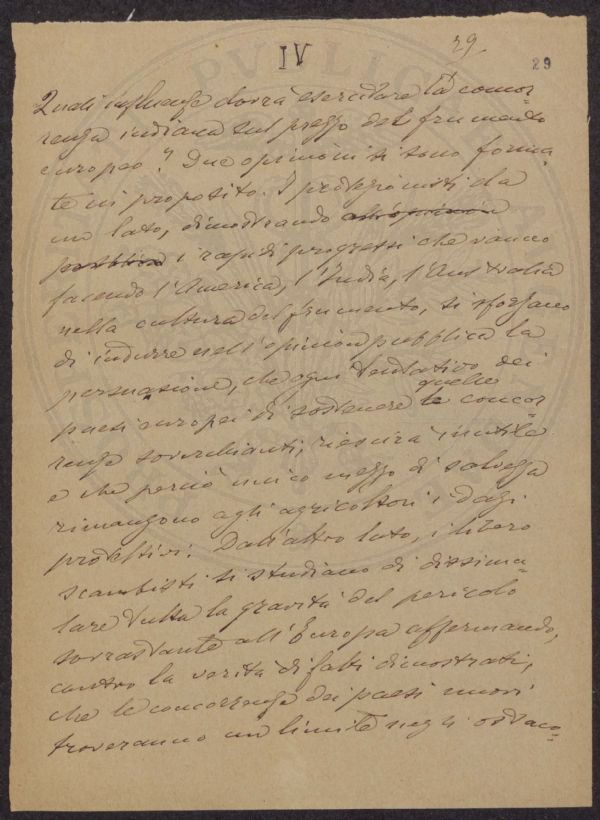 IV
29
29
Quali influenze dovrà esercitare la concor=
renza indiana sul prezzo del frumento
europeo? Due opinioni si sono forma=
te in proposito. I protezionisti da
un lato, dimostrando all'opinione
pubblica i rapidi progressi che vanno
facendo l'America, l'India, l'Australia
nella cultura del frumento, si sforzano
di indurre nell'opinione pubblica la
persuasione, che ogni tentativo dei
quelle
paesi europei di sostenere le concor=
renze soverchianti, riescirà inutile
e che perciò unico mezzo di salvezza
rimangono agli agricoltori i dazi
protettivi. Dall'altro lato, i libero
scambisti si studiano di dissimu=
lare tutta la gravità del pericolo
sovrastante all'Europa affermando,
contro la verità di fatti dimostrati,
che le concorrenze dei paesi nuovi
troveranno un limite negli ostaco=